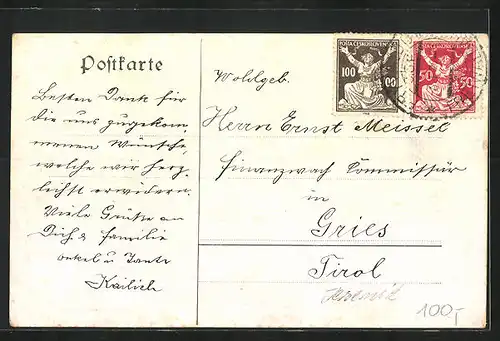 Postkarte
Besten Dank für
die uns zugekom-
menen Wünsche,
welche wir herz-
lichst erwidern.
Viele Grüße an
Dich & Familie
onkel u Tante
Wohlgeb.
POŠTA ČESKOSLOVENSKÁ
100 100
50 50
Herrn Ernst Meissel
Finanzwach Commissär
in
Gries
Tirol
100,-